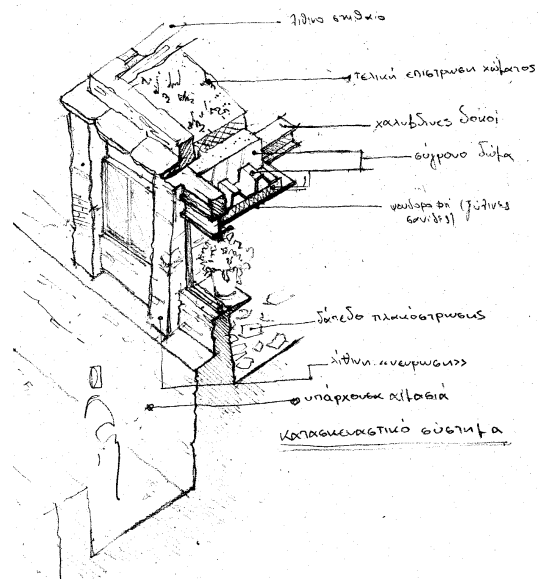 λίθινο στηθαίο
τελική επίστρωση χώματος
χαλύβδινες δοκοί
σύγχρονο δώμα
ψευδοροφή (ξύλινες
σανίδες)
δάπεδο πλακόστρωσης
λίθινη «νευρωση»
υπάρχουσα αιμασιά
κατασκευαστικό σύστημα